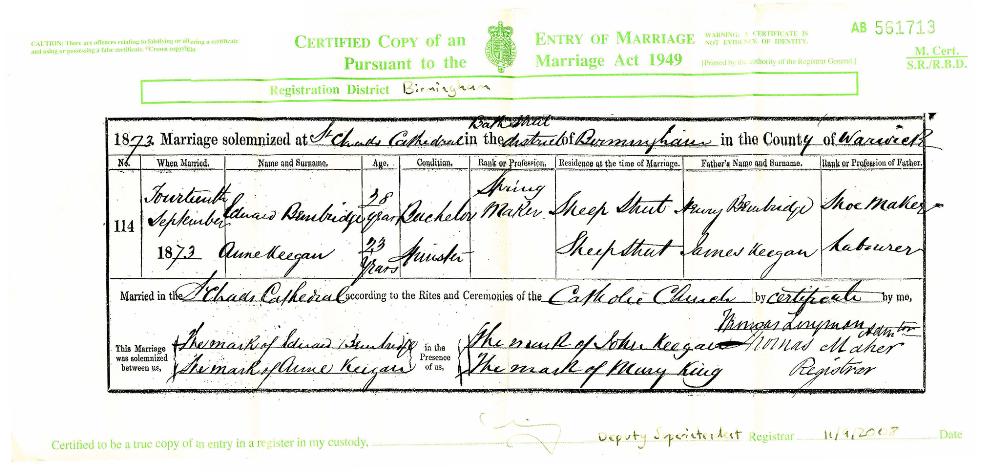 CAUTION: There are offences relating to falsifying or altering a certificate
and using or possessing a false certificate. ©Crown copyright
CERTIFIED COPY of an ENTRY OF MARRIAGE
Pursuant to the Marriage Act 1949
WARNING: A CERTIFICATE IS
NOT EVIDENCE OF IDENTITY.
[Printed by the authority of the Registrar General]
AB 561713
M. Cert.
S.R./R.B.D.
Registration District Birmingham
Bath Street
1873 Marriage solemnized at St Chads Cathedral in the district of Birmingham in the County of Warwick
No. When Married. Name and Surname. Age. Condition. Rank or Profession. Residence at the time of Marriage. Father's Name and Surname. Rank or Profession of Father.
114 Fourteenth September 1873
Edward Bembridge 28 years Bachelor Spring Maker Sheep Street Henry Bembridge Shoe Maker
Anne Keegan 23 years Spinster Sheep Street James Keegan Labourer
Married in the St Chads Cathedral according to the Rites and Ceremonies of the Catholic Church by certificate by me,
Thomas Longman
This Marriage was solemnized between us,
The mark of Edward Bembridge
The mark of Anne Keegan
in the Presence of us,
The mark of John Keegan
The mark of Mary King
Thomas Maher
Registrar
Certified to be a true copy of an entry in a register in my custody, Deputy Superintendent Registrar 11/9/2008 Date